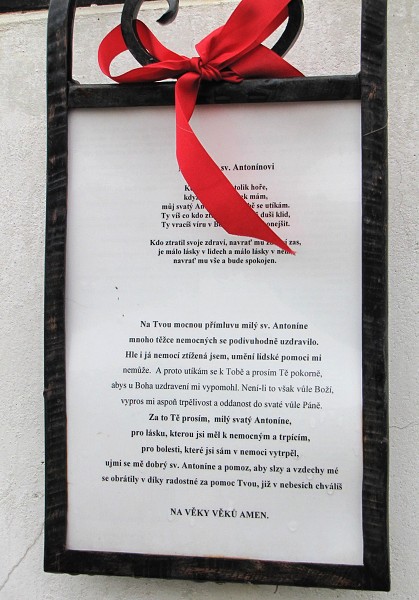 sv. Antonínovi
tolik hoře,
mám,
můj svatý se utíkám.
Ty víš co kdo duši klid,
Ty vracíš víru v
Kdo ztratil svoje zdraví, navrať mu zas,
je málo lásky v lidech a málo lásky v
navrať mu vše a bude spokojen.
Na Tvou mocnou přímluvu milý sv. Antoníne
mnoho těžce nemocných se podivuhodně uzdravilo.
Hle i já nemocí ztížená jsem, umění lidské pomoci mi
nemůže. A proto utíkám se k Tobě a prosím Tě pokorně,
abys u Boha uzdravení mi vypomohl. Není-li to však vůle Boží,
vypros mi aspoň trpělivost a oddanost do svaté vůle Páně.
Za to Tě prosím, milý svatý Antoníne,
pro lásku, kterou jsi měl k nemocným a trpícím,
pro bolesti, které jsi sám v nemoci vytrpěl,
ujmi se mě dobrý sv. Antoníne a pomoz, aby slzy a vzdechy mé
se obrátily v díky radostné za pomoc Tvou, jíž v nebesích chválíš
NA VĚKY VĚKŮ AMEN.